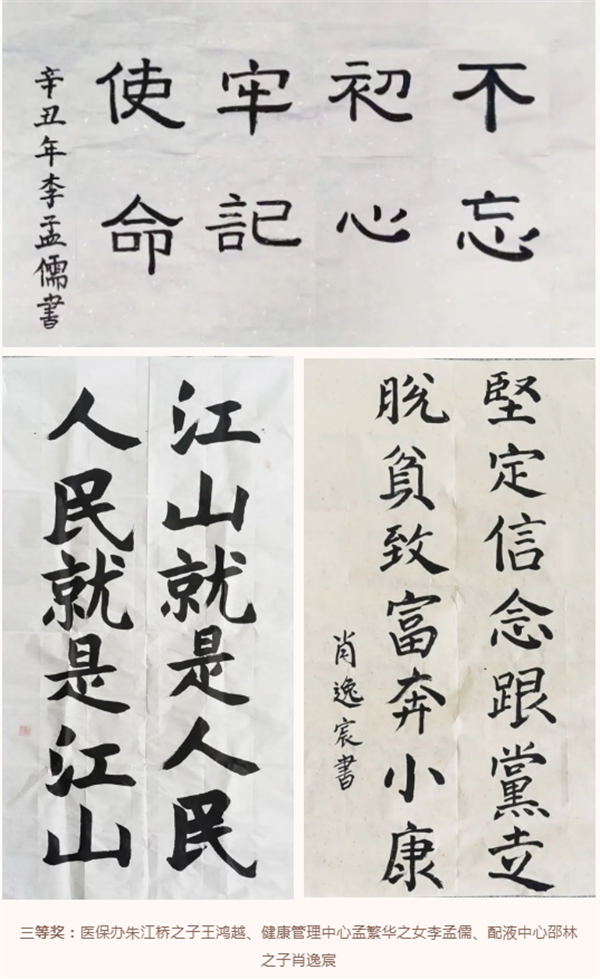 不忘
初心
牢記
使命
辛丑年李孟儒書
江山就是人民
人民就是江山
堅定信念跟黨走
脱貧致富奔小康
肖逸宸書
三等奖：医保办朱江桥之子王鸿越、健康管理中心孟繁华之女李孟儒、配液中心邵林
之子肖逸宸